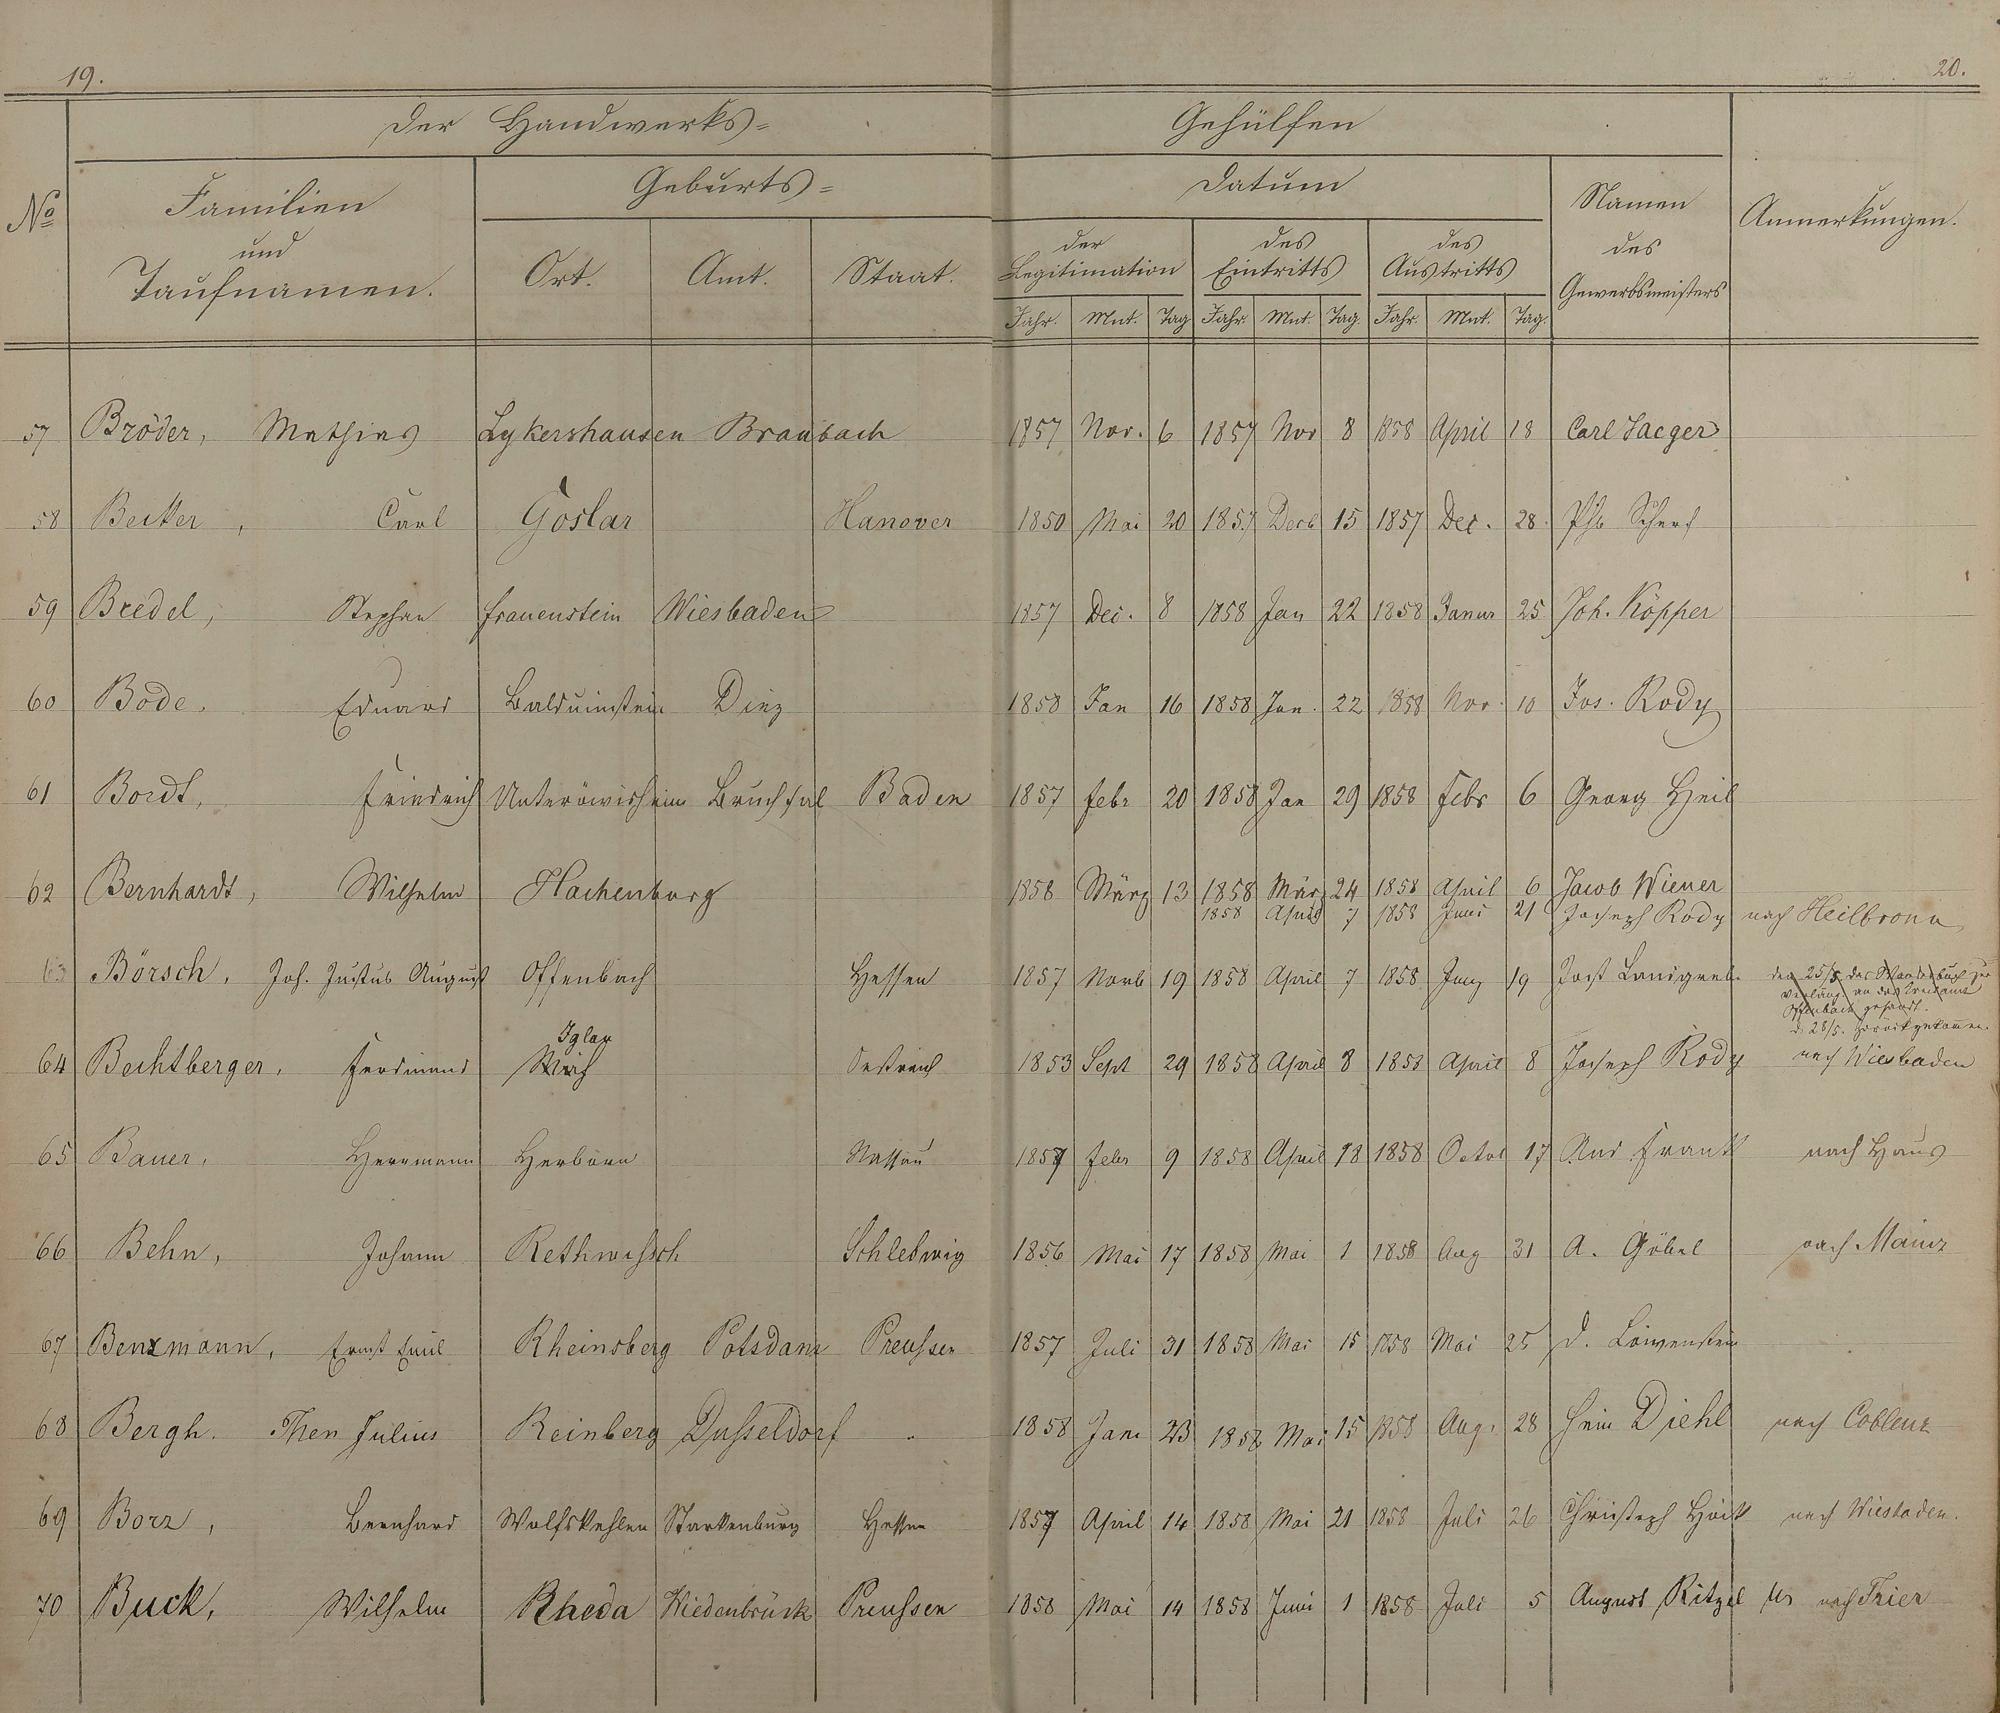 19.
20.
Der Handwerks= Gehülfen
No
Familien
und
Taufnamen.
Geburts=
Ort. Amt. Staat.
Datum
der
Legitimation
des
Eintritts
des
Austritts
Jahr. Mnt. Tag Jahr. Mnt. Tag. Jahr. Mnt. Tag.
Namen
des
Gewerbsmeisters
Anmerkungen.
57 Bröder, Mathias Lykershausen Braubach 1857 Nov. 6 1857 Nov 8 1858 April 18 Carl Jaeger
58 Becker, Carl Goslar Hanover 1850 Mai 20 1857 Decb 15 1857 Dec. 28. Phi Scherf
59 Bredel, Stephan Frauenstein Wiesbaden 1857 Dec. 8 1858 Jan 22 1858 Januar 25 Joh. Köpper
60 Bode, Eduard Balduinstein Diez 1858 Jan 16 1858 Jan. 22 1858 Nov. 10 Jos. Rody
61 Bordt, Friedrich Unteröwisheim Bruchsal Baden 1857 Febr 20 1858 Jan 29 1858 Febr 6 Georg Heil
62 Bernhardt, Wilhelm Hachenburg 1858 März 13 1858 März 24 1858 April 6 Jacob Wiener
1858 April 7 1858 Juni 21 Joseph Rody nach Heilbronn
63 Börsch, Joh. Justus August Offenbach Hessen 1857 Novb 19 1858 April 7 1858 Juny 19 Jost
den 25/5 das Wanderbuch zur
Verläng. an das Kreisamt
Offenbach gesandt.
d. 28/5. zurückgekommen.
Iglau
64 Bechtberger, Ferdinand Oestreich 1853 Sept 29 1858 April 8 1858 April 8 Joseph Rody nach Wiesbaden
65 Bauer, Herrmann Herborn Nassau 1857 Febr 9 1858 April 18 1858 Octob 17 And. Frank nach Haus
66 Behn, Johann Rethwisch Schleswig 1856 Mai 17 1858 Mai 1 1858 Aug 31 A. Göbel nach Mainz
67 Benzmann, Ernst Emil Rheinsberg Potsdam Preussen 1857 Juli 31 1858 Mai 15 1858 Mai 25 D. Löwenstein
68 Bergh. Then Julius Reinberg Dusseldorf " 1858 Jan 23 1858 Mai 15 1858 Aug. 28 Hein Diehl nach Coblenz
69 Borz, Bernhard Wolfskehlen Starkenburg Hessen 1857 April 14 1858 Mai 21 1858 Juli 26 Christoph nach Wiesbaden.
70 Buck, Wilhelm Rheda Wiedenbrück Preussen 1858 Mai 14 1858 Juni 1 1858 Juli 5 August Ritzel nach Trier